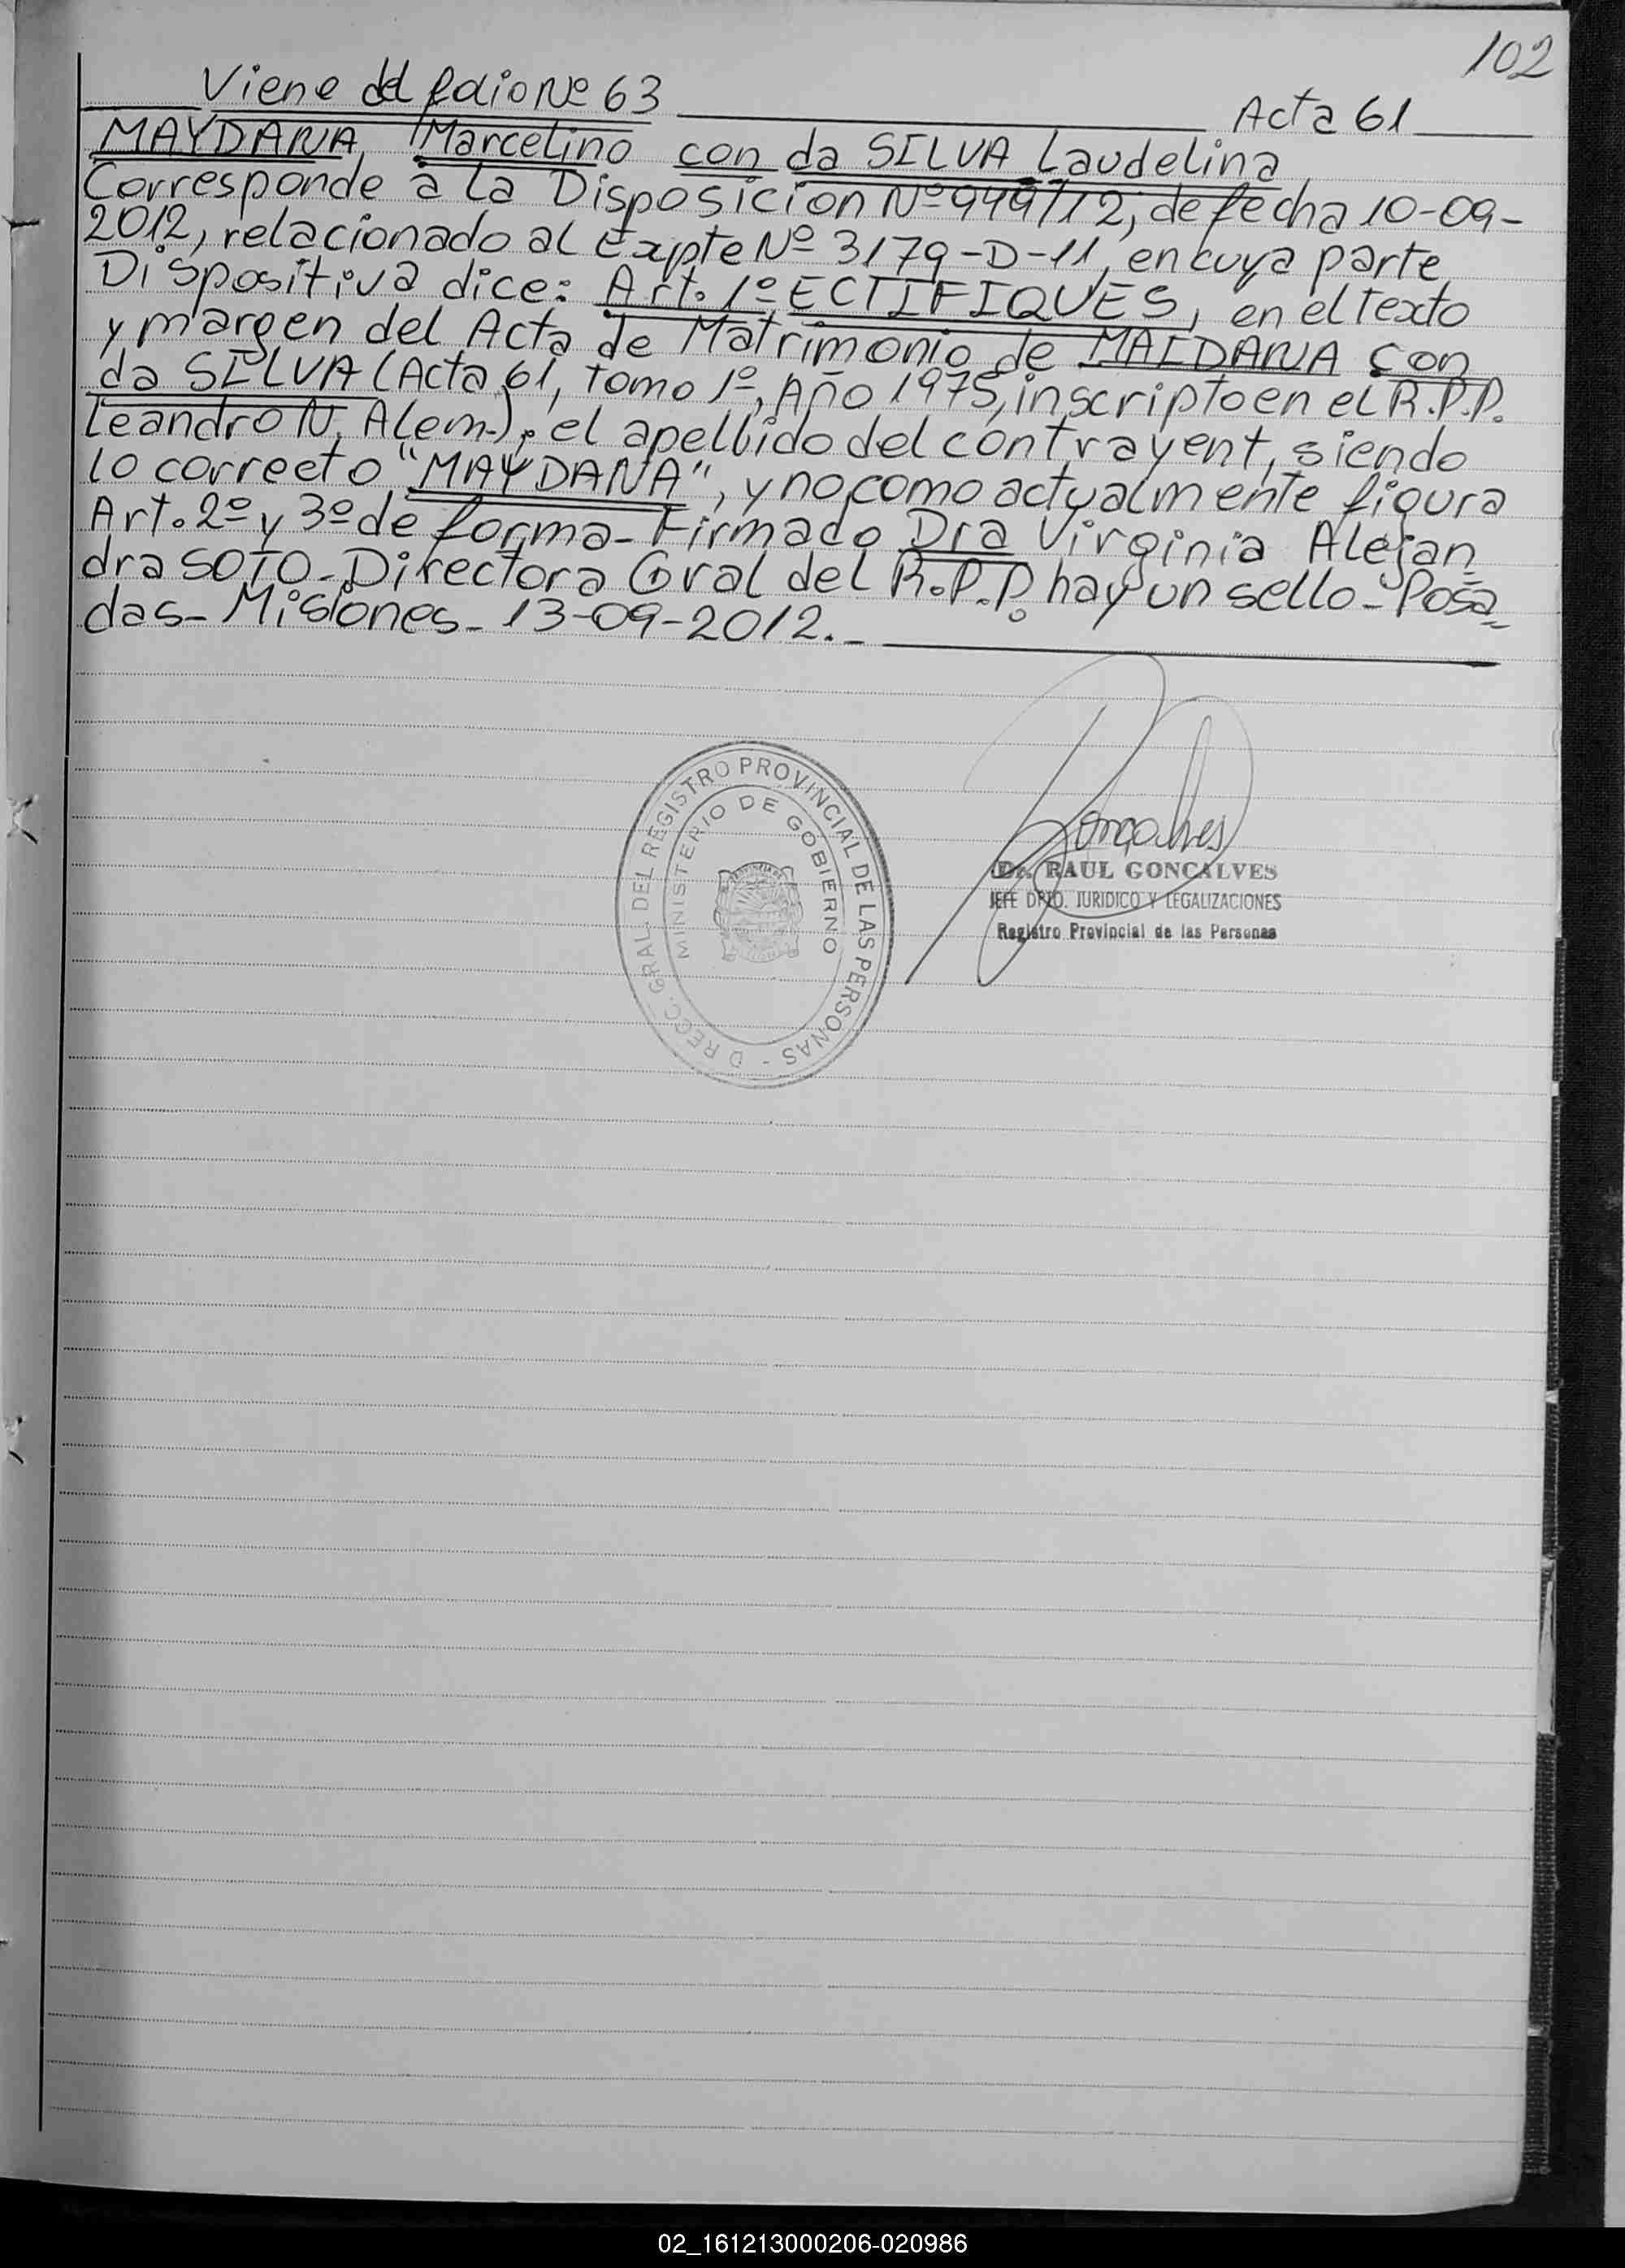 102
Viene del folio Nº 63 Acta 61
MAYDANA, Marcelino con da SILVA Laudelina
Corresponde a la Disposicion Nº 949/12, de fecha 10-09-
2012, relacionado al Expte Nº 3179-D-11, en cuya parte
Dispositiva dice: Art. 1º ECTIFIQUES, en el Texto
y margen del Acta de Matrimonio de MAIDANA con
da SILVA (Acta 61, Tomo 1º, Año 1975, inscripto en el R.P.P.
Leandro N. Alem.), el apellido del contrayent, siendo
lo correcto "MAYDANA", y no como actualmente figura
Art. 2º y 3º de forma - Firmado Dra Virginia Alejan
dra SOTO - Directora Gral del R.P.P. hay un sello - Posa
das - Misiones - 13-09-2012. -
DIRECC. GRAL. DEL REGISTRO PROVINCIAL DE LAS PERSONAS -
MINISTERIO DE GOBIERNO
Gonçalves
Dr. RAUL GONCALVES
JEFE DPTO. JURIDICO Y LEGALIZACIONES
Registro Provincial de las Personas
02_161213000206-020986